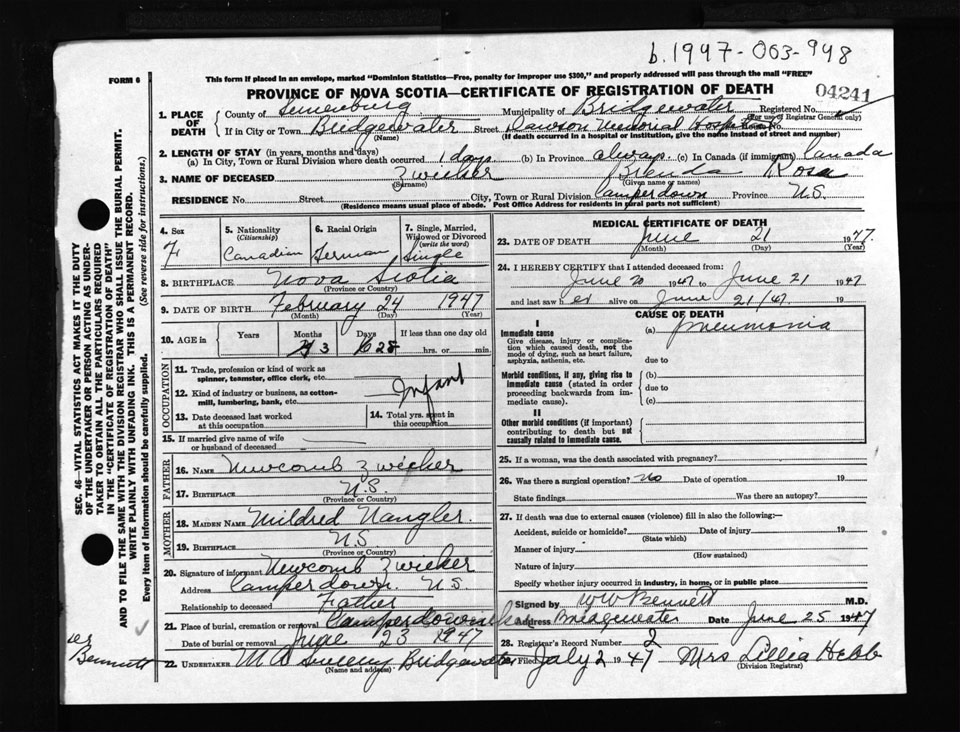 b.1947-063-948
FORM 6
This form if placed in an envelope, marked "Dominion Statistics—Free, penalty for improper use $300," and properly addressed will pass through the mail "FREE"
PROVINCE OF NOVA SCOTIA—CERTIFICATE OF REGISTRATION OF DEATH
04241
1. PLACE OF DEATH County of Lunenburg Municipality of Bridgewater Registered No.
(For use of Registrar General only)
If in City or Town Bridgewater Street Dawson Memorial Hospital House No.
(Name) (If death occurred in a hospital or institution, give the name instead of street and number)
2. LENGTH OF STAY (in years, months and days)
(a) In City, Town or Rural Division where death occurred 1 days (b) In Province always (c) In Canada (if immigrant) Canada
3. NAME OF DECEASED Zwicker Brenda Rosa
(Surname) (Given name or names)
RESIDENCE No. Street City, Town or Rural Division Camperdown Province N.S.
(Residence means usual place of abode. Post Office Address for residents in rural parts not sufficient)
4. Sex F
5. Nationality (Citizenship) Canadian
6. Racial Origin German
7. Single, Married, Widowed or Divorced (write the word) Single
8. BIRTHPLACE Nova Scotia
(Province or Country)
9. DATE OF BIRTH February 24 1947
(Month) (Day) (Year)
10. AGE in Years Months 3 Days 28 If less than one day old
hrs. or min.
OCCUPATION
11. Trade, profession or kind of work as spinner, teamster, office clerk, etc.
12. Kind of industry or business, as cotton-mill, lumbering, bank, etc. Infant
13. Date deceased last worked at this occupation
14. Total yrs. spent in this occupation
15. If married give name of wife or husband of deceased
FATHER
16. NAME Newcomb Zwicker
17. BIRTHPLACE N.S.
(Province or Country)
MOTHER
18. MAIDEN NAME Mildred Nangler.
19. BIRTHPLACE N.S
(Province or Country)
20. Signature of informant Newcomb Zwicker
Address Camperdown. N.S.
Relationship to deceased Father
21. Place of burial, cremation or removal Camperdown
Date of burial or removal June 23 1947
22. UNDERTAKER Bridgewater
(Name and address)
MEDICAL CERTIFICATE OF DEATH
23. DATE OF DEATH June 21 1947.
(Month) (Day) (Year)
24. I HEREBY CERTIFY that I attended deceased from:
June 20 1947 to June 21 1947
and last saw her alive on June 21/47 19
CAUSE OF DEATH
I
Immediate cause (a) Pneumonia
Give disease, injury or complication which caused death, not the mode of dying, such as heart failure, asphyxia, asthenia, etc.
due to
Morbid conditions, if any, giving rise to immediate cause (stated in order proceeding backwards from immediate cause). (b)
due to
(c)
II
Other morbid conditions (if important) contributing to death but not causally related to immediate cause.
25. If a woman, was the death associated with pregnancy?
26. Was there a surgical operation? No Date of operation 19
State findings Was there an autopsy?
27. If death was due to external causes (violence) fill in also the following:—
Accident, suicide or homicide? Date of injury 19
(State which)
Manner of injury
(How sustained)
Nature of injury
Specify whether injury occurred in industry, in home, or in public place
Signed by WW Bennett M.D.
Address Bridgewater Date June 25 1947
28. Registrar's Record Number 2
Filed July 2 1947 Mrs Lillia Hebb
(Division Registrar)
SEC. 46—VITAL STATISTICS ACT MAKES IT THE DUTY
OF THE UNDERTAKER OR PERSON ACTING AS UNDER-
TAKER TO OBTAIN ALL THE PARTICULARS REQUIRED
IN THE "CERTIFICATE OF REGISTRATION OF DEATH"
AND TO FILE THE SAME WITH THE DIVISION REGISTRAR WHO SHALL ISSUE THE BURIAL PERMIT.
WRITE PLAINLY WITH UNFADING INK. THIS IS A PERMANENT RECORD.
Every item of information should be carefully supplied. (See reverse side for instructions.)
Bennett